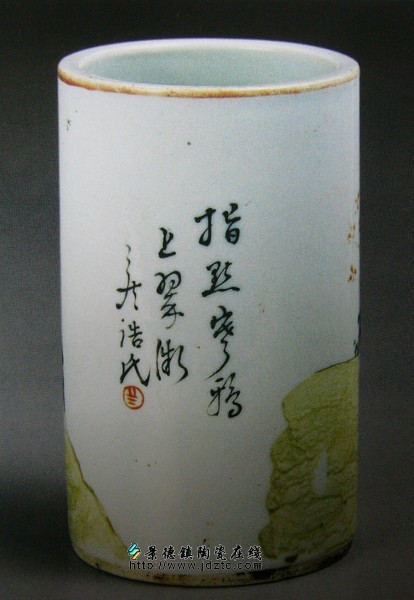 指點寒鴉
上翠微
浩氏
景德鎮陶瓷在綫
http://www.jdztc.com